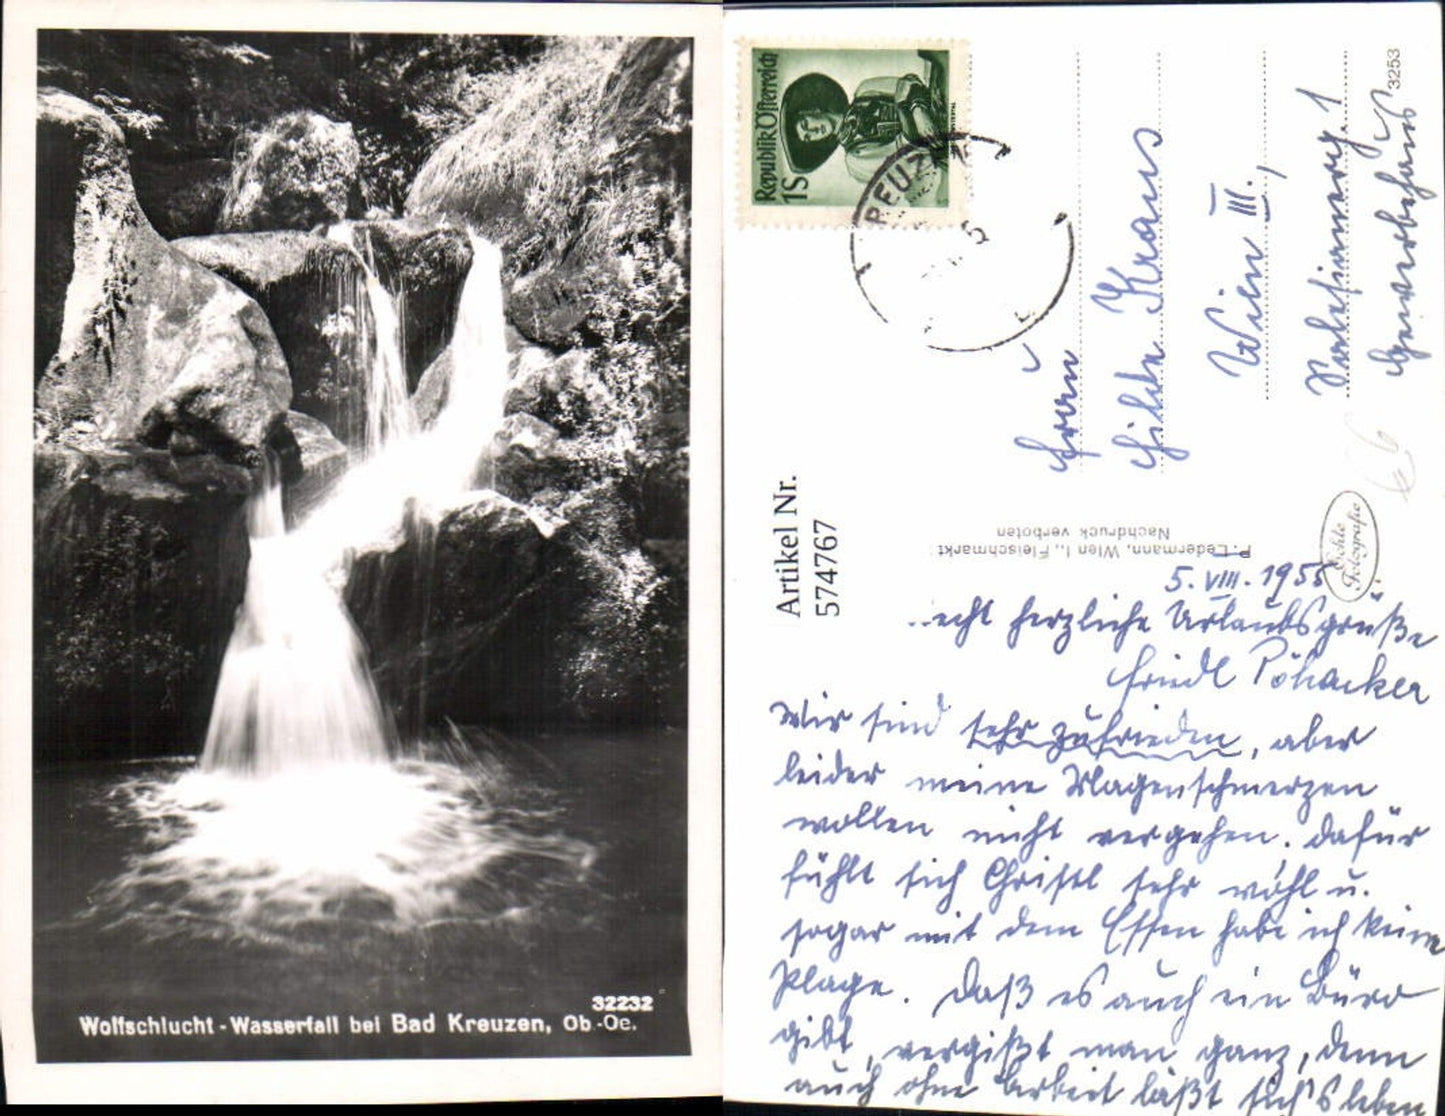 32232
Wolfschlucht - Wasserfall bei Bad Kreuzen, Ob.-Oe.
Republik Österreich
1S
KREUZ
3253
Frau
Hilde Kraus
Wien III.,
Gewerbehaus
66
Artikel Nr.
574767
P. Ledermann, Wien I., Fleischmarkt
Nachdruck verboten
Echte
Fotografie
5. VIII. 1955
recht herzliche Urlaubsgrüße
Friedl Pöhacker
Wir sind sehr zufrieden, aber
leider meine Magenschmerzen
wollen nicht vergehen. Dafür
fühlt sich Christl sehr wohl u.
sogar mit dem Essen habe ich keine
Plage. Daß es auch ein Büro
gibt, vergißt man ganz, denn
auch ohne Arbeit läßt sich's leben